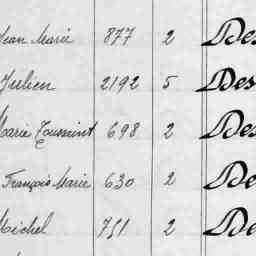 Jean Marie 877 2 Des
Julien 2192 5 Des
Marie Toussaint 698 2 Des
François Marie 630 2 De
Michel 751 2 De